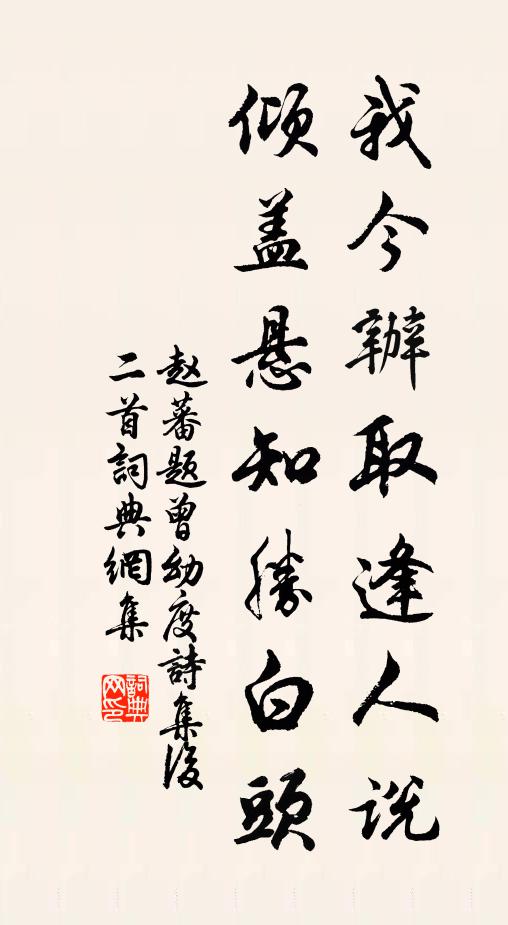 我今辦取逢人说
倾盖悬知勝白頭
赵蕃题曾幼度詩集後
二首詞典網集
詞典
网印